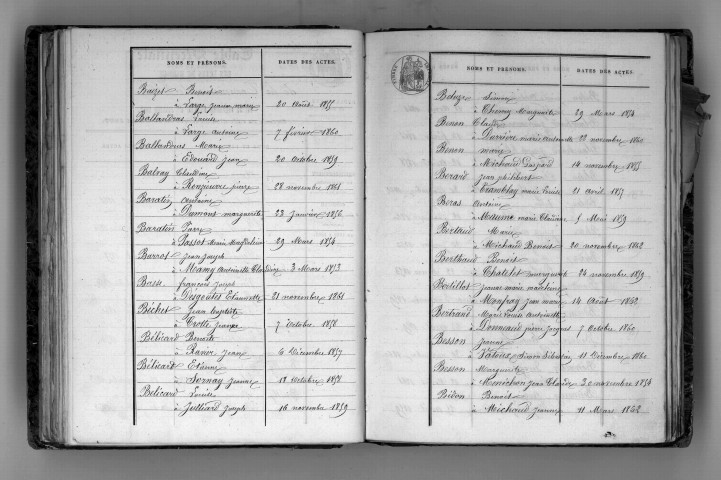 NOMS ET PRÉNOMS. DATES DES ACTES.
Baizet Benoit
à Large jeanne marie 20 Août 1855
Ballandras Louise
à Large antoine 7 février 1860
Ballandras Marie
à Edouard Jean 20 Octobre 1859
Balvay Claudine
à pierre 28 novembre 1861
Baratin
à Dumont marguerite 23 Janvier 1856
Baratin
à Passot Marie Magdeleine 29 Mars 1854
Barrot Jean Joseph
à Mamy Antoinette Claudine 3 Mars 1853
françois Joseph
à Desgoutes Etiennette 21 novembre 1861
Béchet Jean
à Crotte Jeanne 7 Octobre 1858
Bélicard Benoite
à Ravier Jean 6 Décembre 1857
Bélicard Etienne
à Sornay Jeanne 18 Octobre 1858
Bélicard Louise
à Julliard Joseph 16 novembre 1859
NOMS ET PRÉNOMS. DATES DES ACTES.
Simon
à Marguerite 29 Mars 1854
Benon Claude
à marie Antoinette 22 novembre 1860
Benon marie
à Michaud Gaspard 14 novembre 1855
Berard jean philibert
à Tramblay marie Louise 21 avril 1857
Antoine
à marie 5 Mai 1859
Marie
à Michaud Benoit 20 novembre 1862
Berthaud Benoit
à Chatelet marguerite 24 novembre 1859
jeanne marie
à Monfray jean marie 14 Août 1862
Bertrand Marie Louise Antoinette
à pierre Jacques 7 Octobre 1860
Besson Jeanne
à Simon Sébastien 11 Décembre 1860
Besson Marguerite
à Monichon Jean Claude 30 novembre 1854
Benoit
à Michaud Jeanne 11 Mars 1862